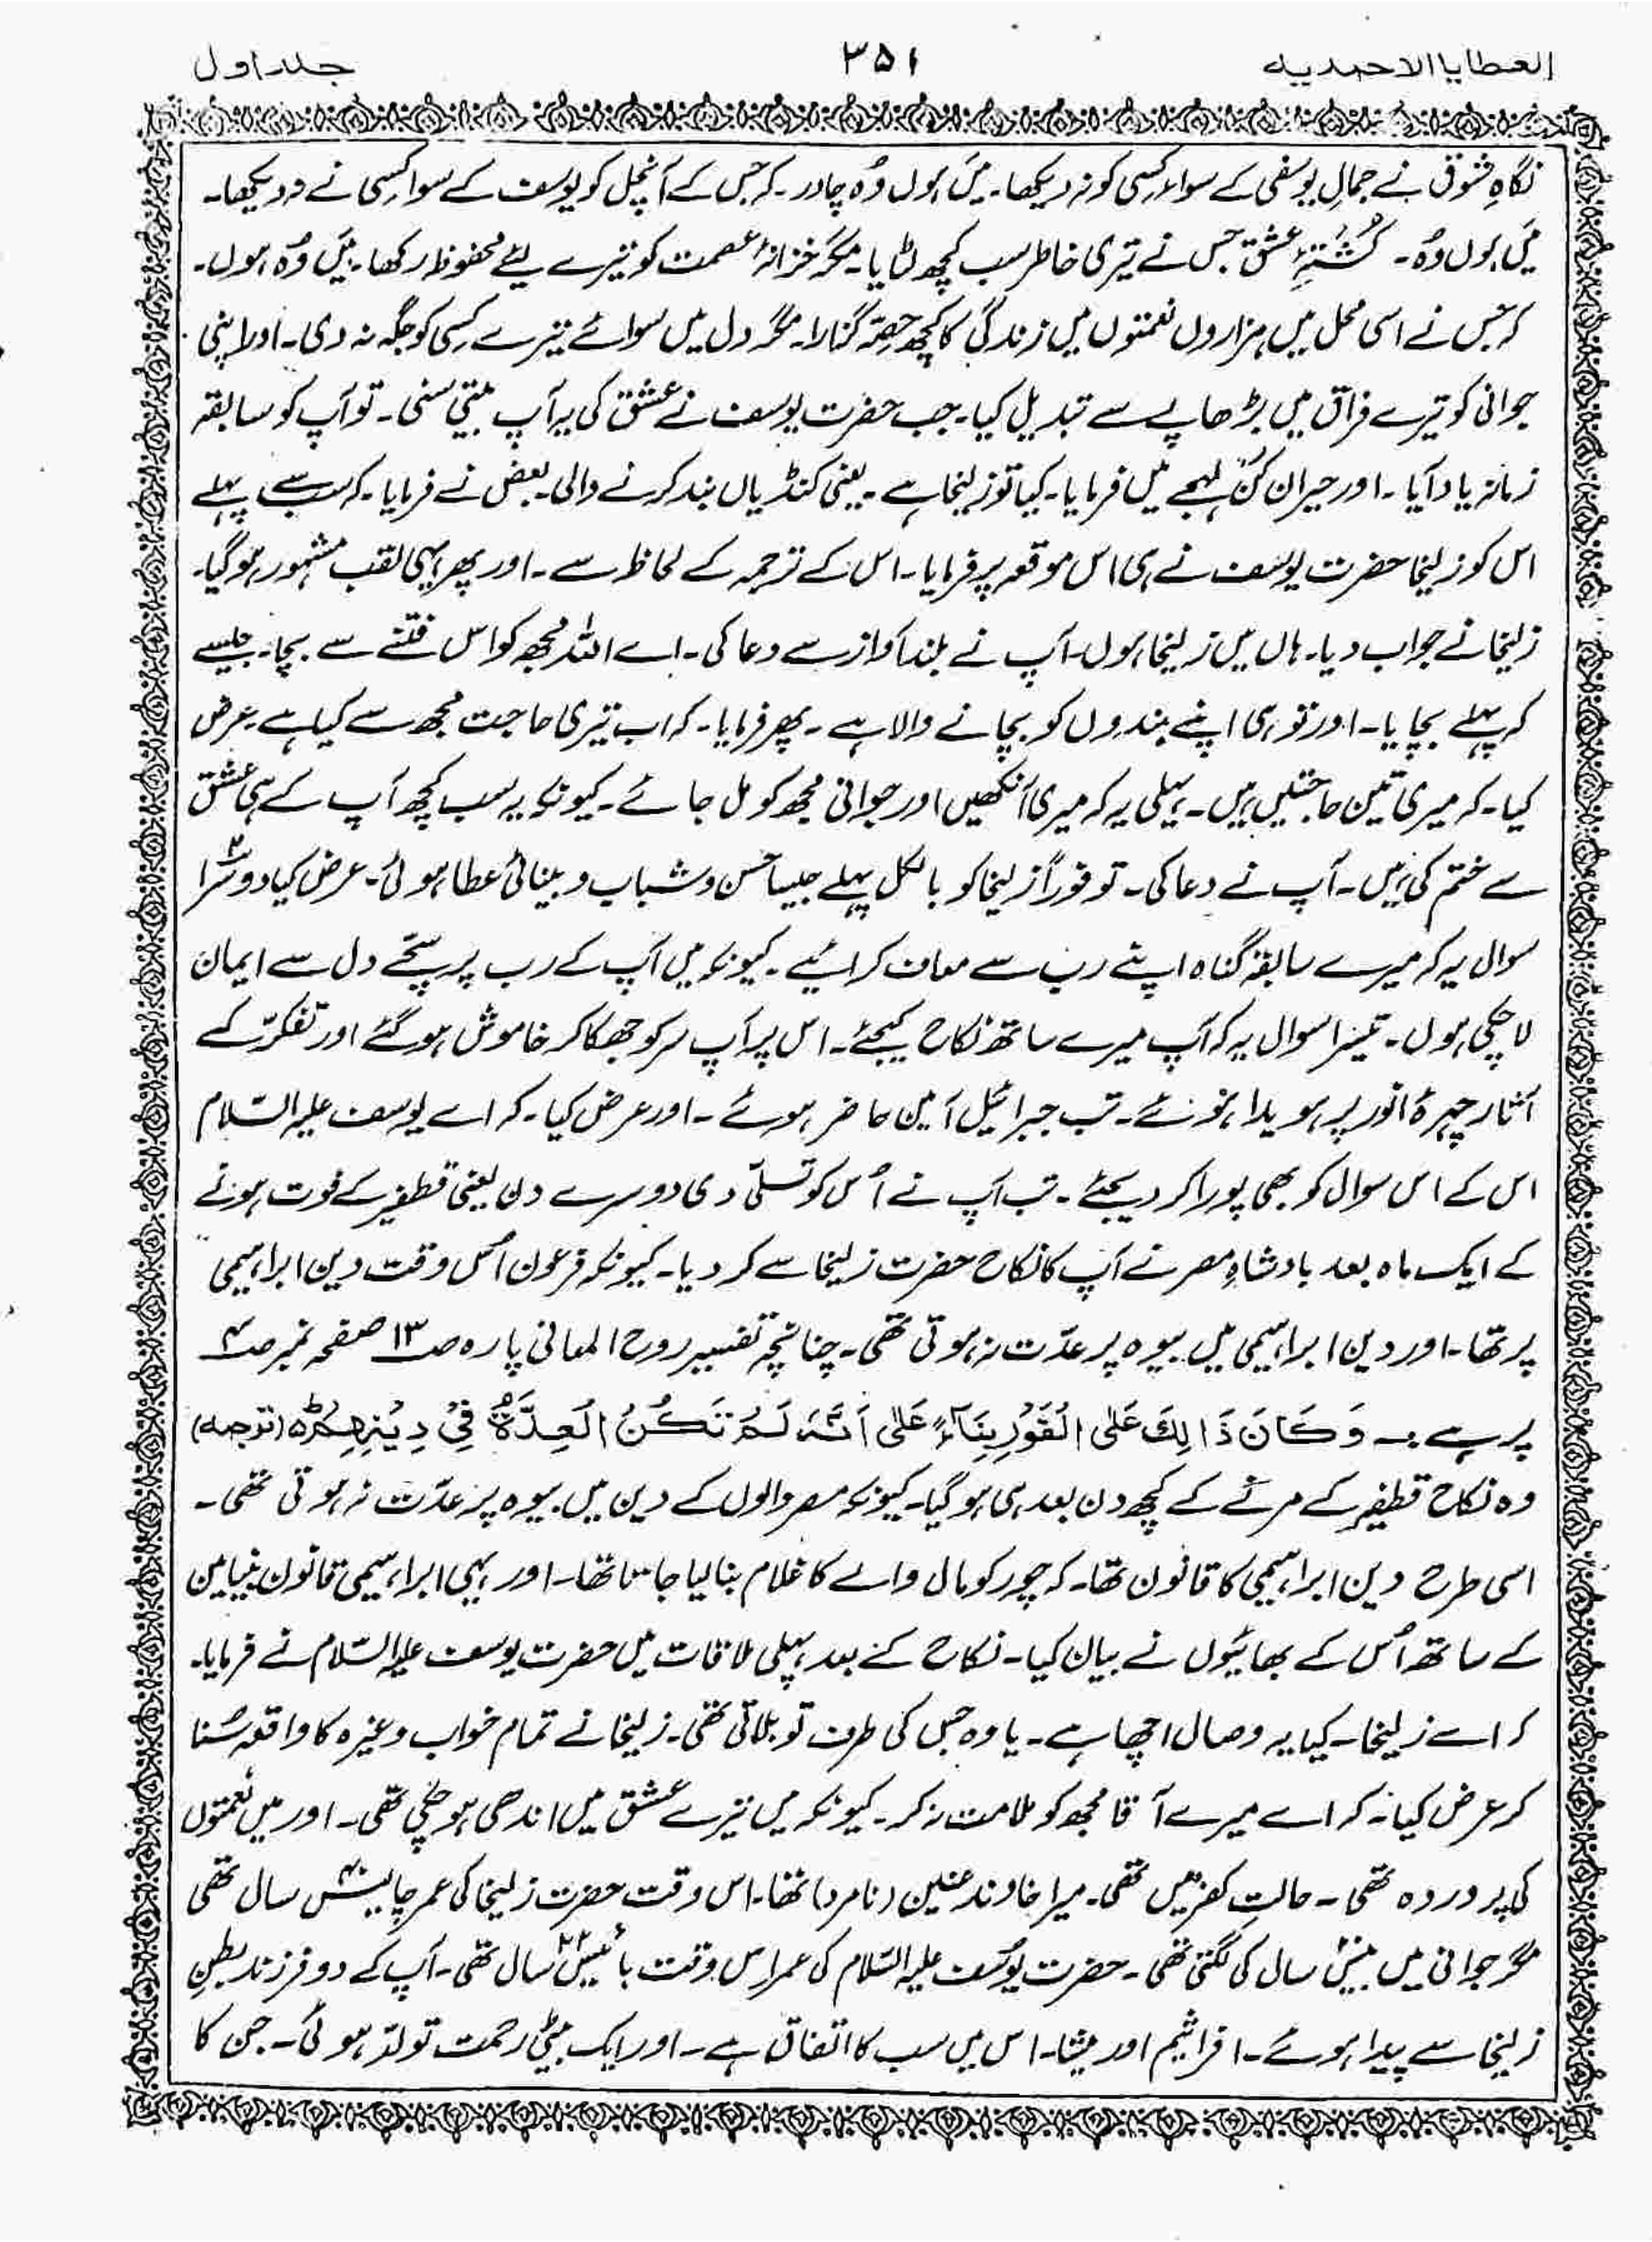 العطایا الاحمدیہ ۳۵۱ جلد اول
نگاہِ شوق نے جمالِ یوسفی کے سواء کسی کو نہ دیکھا۔ میں ہوں وُہ چادر۔ کہ جس کے آنچل کو یوسف کے سوا کسی نے نہ دیکھا۔
میں ہوں وُہ۔ کُشتۂِ عشق جس نے تیری خاطر سب کچھ لٹایا۔ مگر خزانۂ عصمت کو تیرے لیئے محفوظ رکھا۔ میں وُہ ہوں۔
کہ جس نے اسی محل میں ہزاروں نعمتوں میں زندگی کا کچھ حصّہ گذارا۔ مگر دل میں سوائے تیرے کسِی کو جگہ نہ دی۔ اور اپنی
جوانی کو تیرے فراق میں بڑھاپے سے تبدیل کیا۔ جب حضرت یوسف نے عشق کی یہ آپ بیتی سنی۔ تو آپ کو سابقہ
زمانہ یاد آیا۔ اور حیران کُن لہجے میں فرمایا۔ کیا تو زلیخا ہے۔ یعنی کنڈیاں بند کرنے والی۔ بعض نے فرمایا۔ کہ سب سے پہلے
اس کو زلیخا حضرت یوسف نے ہی اس موقعہ پر فرمایا۔ اس کے ترجمہ کے لحاظ سے۔ اور پھر یہی لقب مشہور ہو گیا۔
زلیخا نے جواب دیا۔ ہاں میں زلیخا ہوں۔ آپ نے بلند آواز سے دعا کی۔ اے اللہ مجھ کو اس فتنے سے بچا۔ جیسے
کہ پہلے بچایا۔ اور تو ہی اپنے بندوں کو بچانے والا ہے۔ پھر فرمایا۔ کہ اب تیری حاجت مجھ سے کیا ہے۔ عرض
کیا۔ کہ میری تین حاجتیں ہیں۔ پہلی یہ کہ میری آنکھیں اور جوانی مجھ کو مل جائے۔ کیونکہ یہ سب کچھ آپ کے ہی عشق
سے ختم کی ہیں۔ آپ نے دعا کی۔ تو فوراً زلیخا کو بالکل پہلے جیسا حُسن و شباب و بینائی عطا ہوئی۔ عرض کیا دوسرا ۲
سوال یہ کہ میرے سابقہ گناہ اپنے رب سے معاف کرائیے۔ کیونکہ میں آپ کے رب پر سچّے دل سے ایمان
لا چکی ہوں۔ تیسرا سوال یہ کہ آپ میرے ساتھ نکاح کیجئے۔ اس پر آپ سر کو جھکا کر خاموش ہو گئے اور تفکّر کے
آثار چہرۂ انور پر ہویدا ہوئے۔ تب جبرائیل آمین حاضر ہوئے۔ اور عرض کیا۔ کہ اے یوسف علیہ السّلام
اس کے اس سوال کو بھی پورا کر دیجئے۔ تب آپ نے اُس کو تسلّی دی دوسرے دن یعنی قطفیر کے فوت ہونے
کے ایک ماہ بعد بادشاہِ مصر نے آپ کا نکاح حضرت زلیخا سے کر دیا۔ کیونکہ فرعون اُس وقت دین ابراہیمی
پر تھا۔ اور دین ابراہیمی میں بیوہ پر عدّت نہ ہوتی تھی۔ چنانچہ تفسیر روح المعانی پارہ ص۱۳ صفحہ نمبر ص۴
پر ہے :۔ وَ كَانَ ذَالِكَ عَلَى الْفَوْرِ بِنَاءً عَلٰى اَنَّهٗ لَمْ تَكُنِ الْعِدَّةُ فِيْ دِيْنِهِمْ (ترجمہ)
وہ نکاح قطفیر کے مرنے کے کچھ دن بعد ہی ہو گیا۔ کیونکہ مصر والوں کے دین میں بیوہ پر عدّت نہ ہوتی تھی۔
اسی طرح دین ابراہیمی کا قانون تھا۔ کہ چور کو مال والے کا غلام بنا لیا جاتا تھا۔ اور یہی ابراہیمی قانون بنیامین
کے ساتھ اُس کے بھائیوں نے بیان کیا۔ نکاح کے بعد پہلی ملاقات میں حضرت یوسف علیہ السّلام نے فرمایا۔
کہ اے زلیخا۔ کیا یہ وصال اچھا ہے۔ یا وہ جس کی طرف تو بلاتی تھی۔ زلیخا نے تمام خواب وغیرہ کا واقعہ سُنا
کر عرض کیا۔ کہ اے میرے آقا مجھ کو ملامت نہ کر۔ کیونکہ میں تیرے عشق میں اندھی ہو چکی تھی۔ اور میں نعمتوں
کی پروردہ تھی۔ حالتِ کفر میں تھی۔ میرا خاوند عنین (نامرد) تھا۔ اس وقت حضرت زلیخا کی عمر چالیس ۴۰ سال تھی
مگر جوانی میں بیس سال کی لگتی تھی۔ حضرت یوسف علیہ السّلام کی عمر اس وقت بائیس ۲۲ سال تھی۔ آپ کے دو فرزند بطنِ
زلیخا سے پیدا ہوئے۔ افراثیم اور میشا۔ اس میں سب کا اتفاق ہے۔ اور ایک بیٹی رحمت تولّد ہوئی۔ جن کا